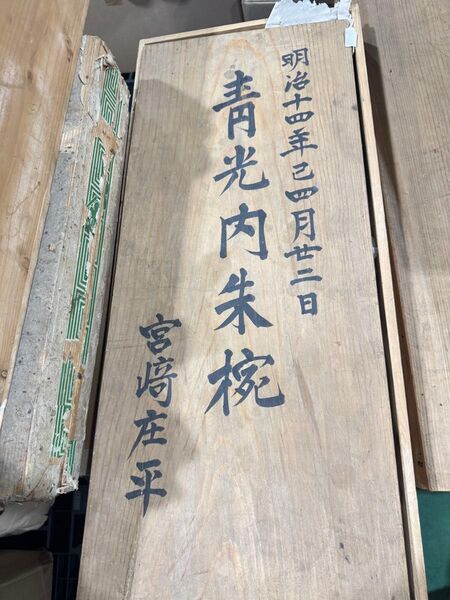 明治十四年己四月廿二日
青光内朱椀
宮﨑庄平